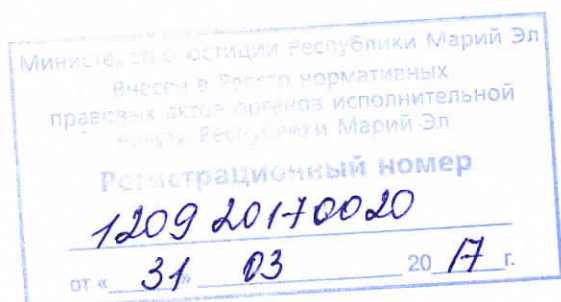 Министерство юстиции Республики Марий Эл
Внесен в Реестр нормативных
правовых актов органов исполнительной
власти Республики Марий Эл
Регистрационный номер
120920170020
от « 31 » 03 20 17 г.